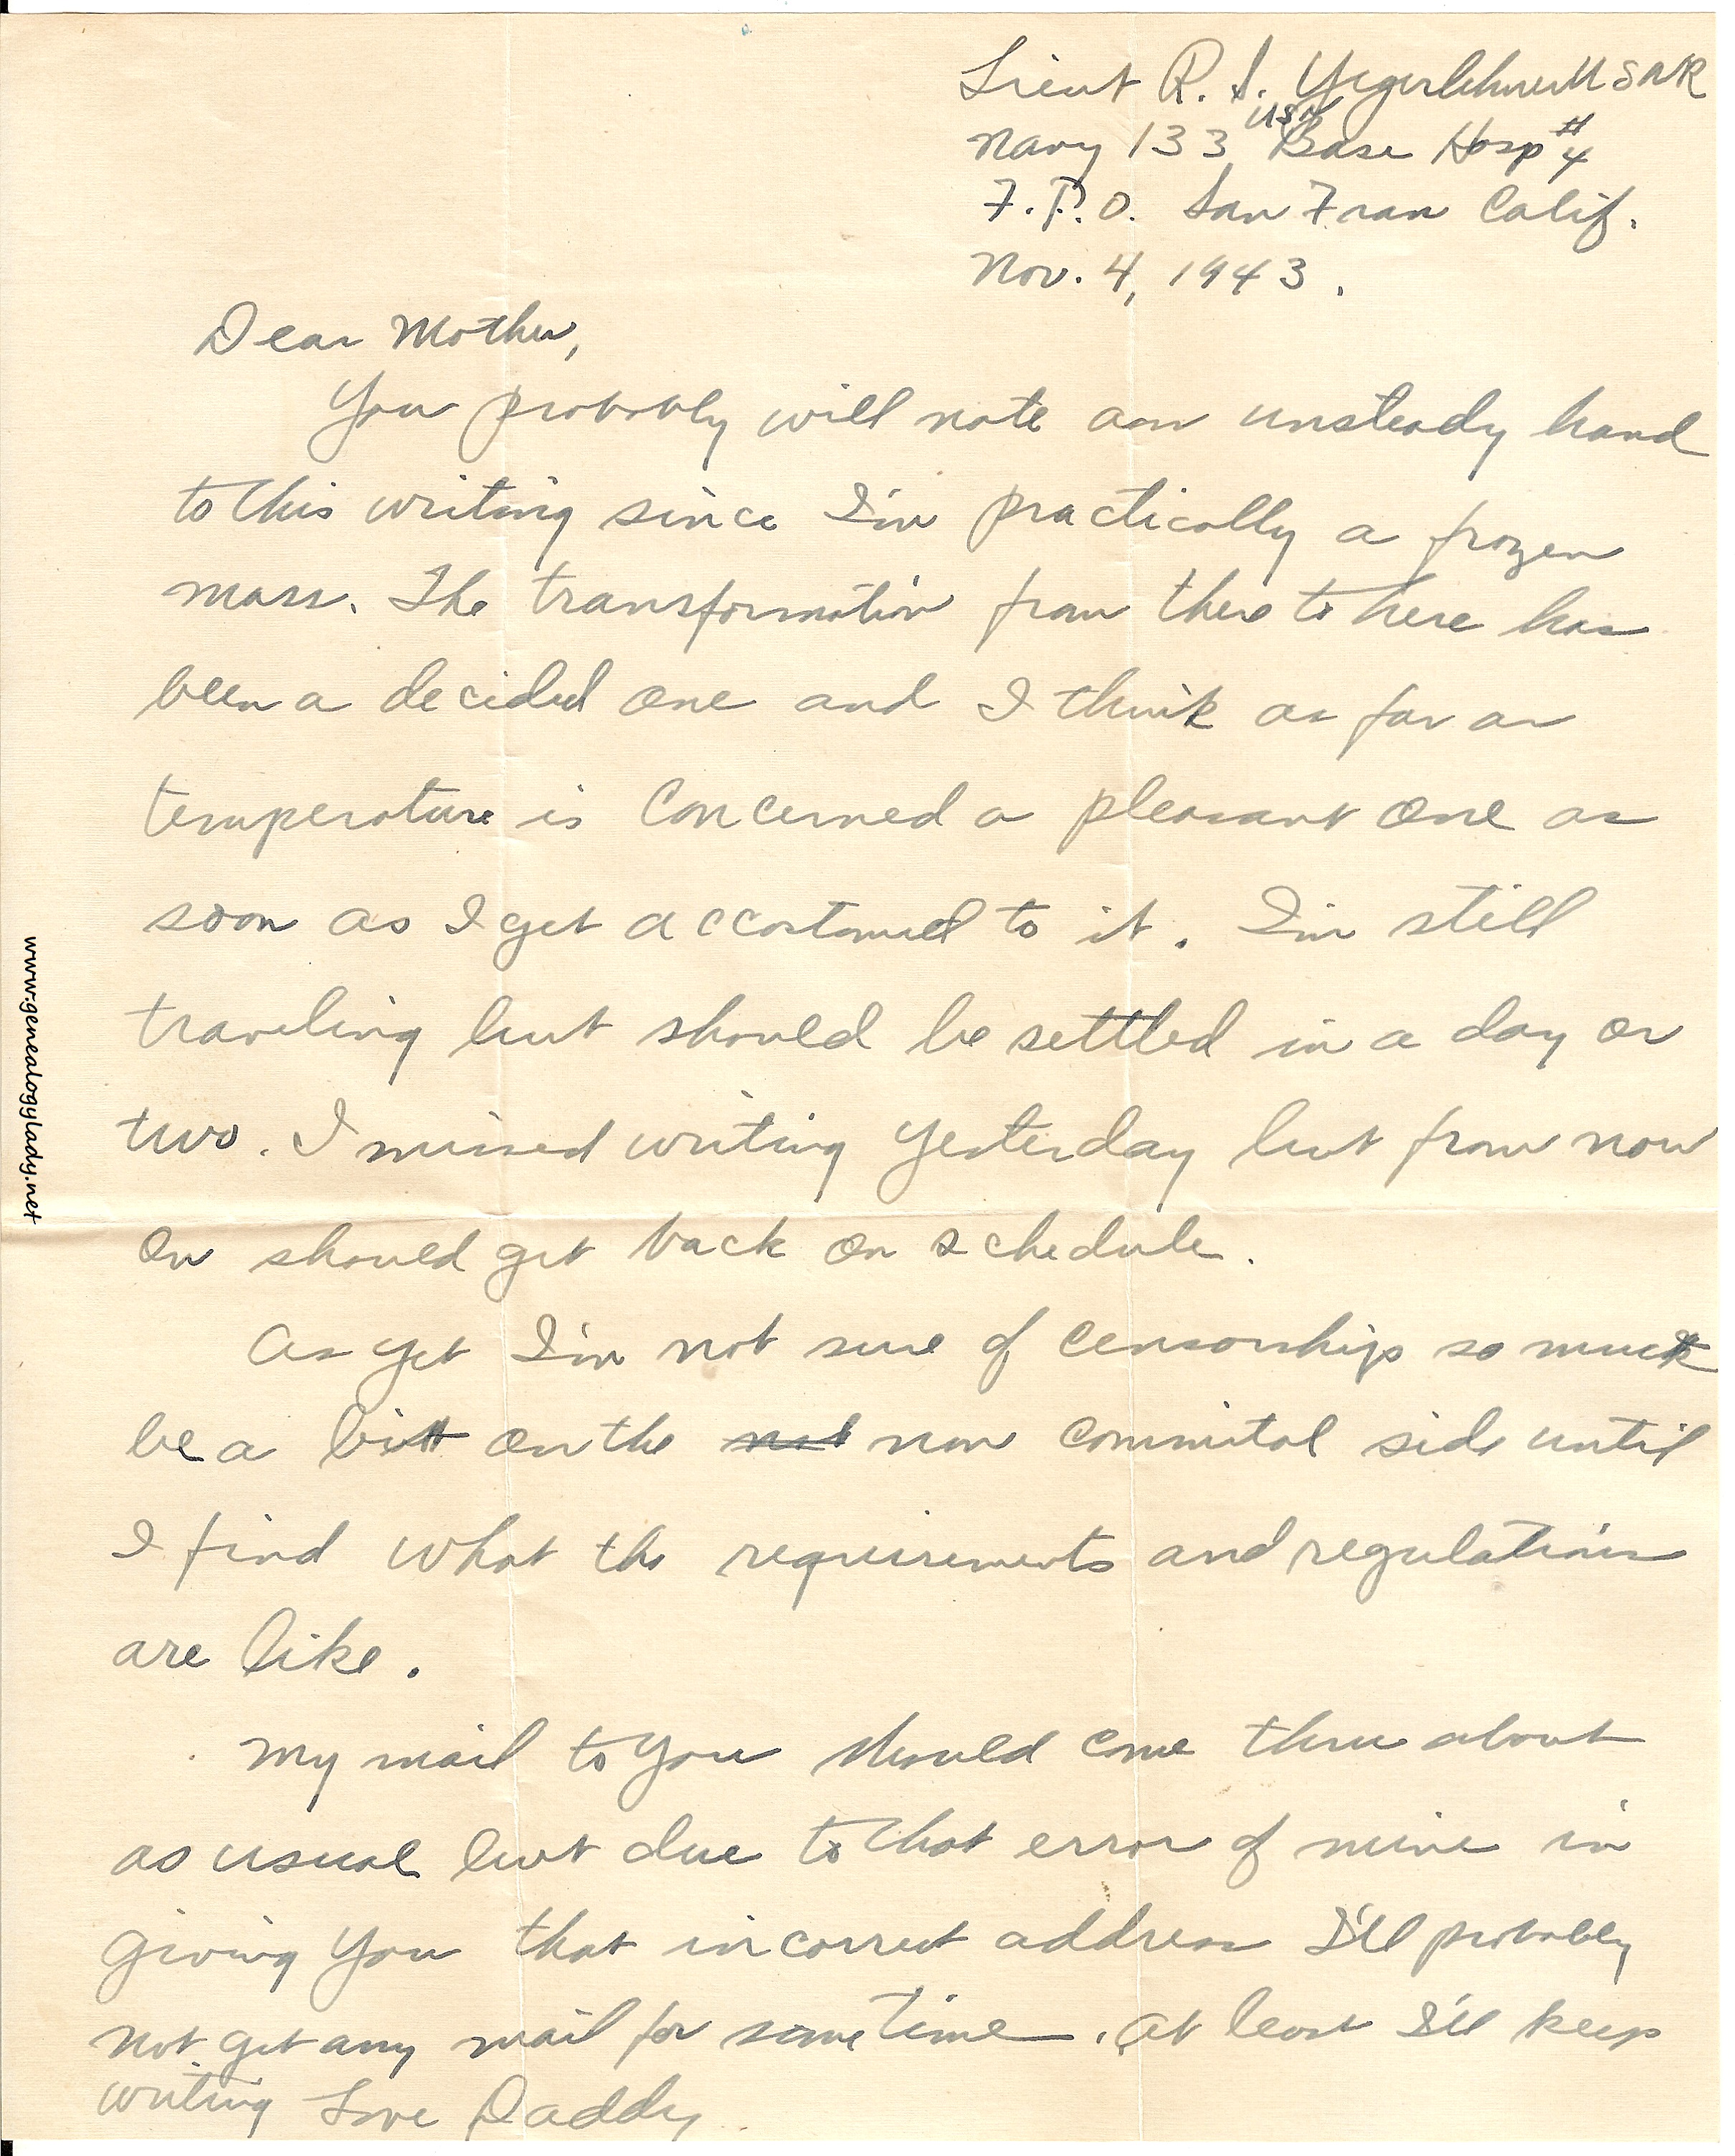 Lieut R. I. Yegerlehner USNR
Navy 133 USN Base Hosp #4
F.P.O. San Fran Calif.
Nov. 4, 1943.
Dear Mother,
You probably will note an unsteady hand
to this writing since I'm practically a frozen
mass. The transformation from there to here has
been a decided one and I think as far as
temperature is concerned a pleasant one as
soon as I get accostomed to it. I'm still
traveling but should be settled in a day or
two. I missed writing yesterday but from now
on should get back on schedule.
As yet I'm not sure of censorship so must
be a bit on the not non commital side until
I find what the requirements and regulations
are like.
My mail to you should come thru about
as usual but due to that error of mine in
giving you that incorrect address I'll probably
not get any mail for some time. At least I'll keep
writing Love Daddy
www.genealogylady.net